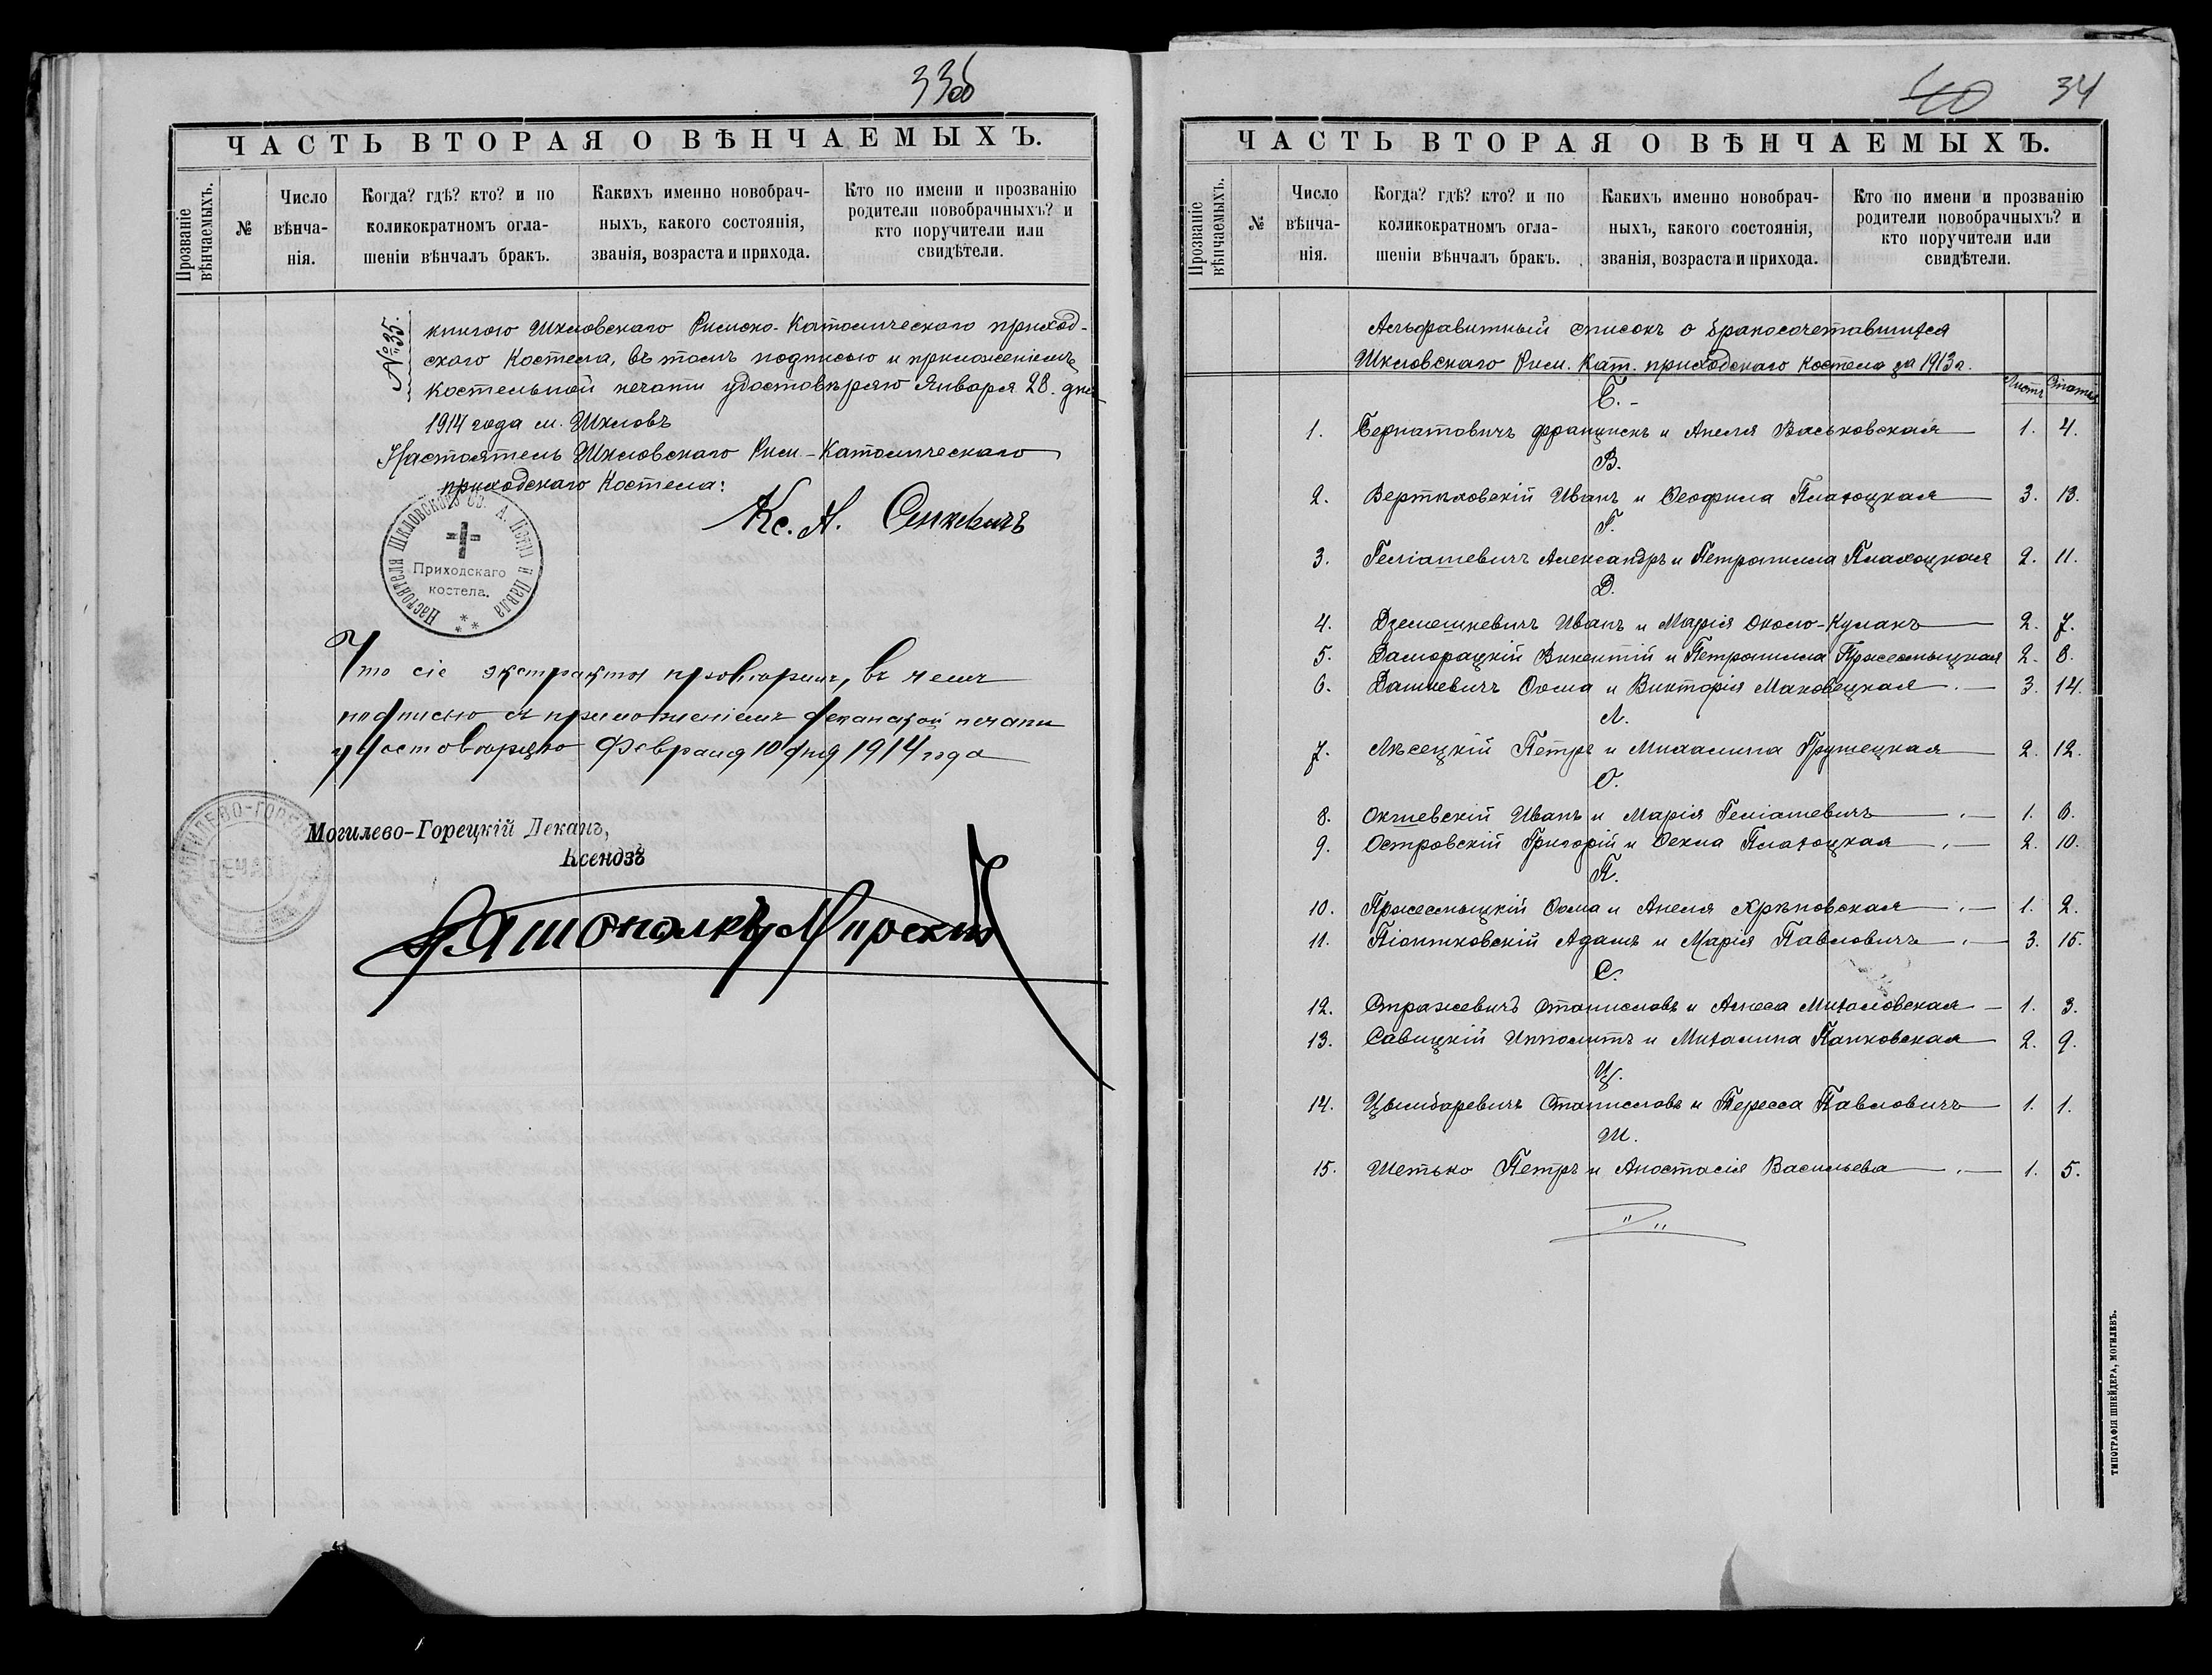 33об
ЧАСТЬ ВТОРАЯ О ВѢНЧАЕМЫХЪ.
Прозваніе вѣнчаемыхъ.
№
Число вѣнча-нія.
Когда? гдѣ? кто? и по коликократномъ огла-шеніи вѣнчалъ бракъ.
Какихъ именно новобрач-ныхъ, какого состоянія, званія, возраста и прихода.
Кто по имени и прозванію родители новобрачныхъ? и кто поручители или свидѣтели.
№ 35.
книгою Шкловскаго Римско-Католическаго приход-
скаго Костела, въ томъ подписью и приложеніемъ
костельной печати удостовѣряю Января 28. дня
1914 года м. Шкловъ
Настоятель Шкловскаго Рим-Католическаго
приходскаго Костела:
Кс. А. Сенкевичъ
Настоятеля Шкловскаго Св. А. Петра и Павла
Приходскаго
костела.
Что сіе экстрактъ провѣрилъ, въ чемъ
подписью съ приложеніемъ деканской печати
удостовѣряю Февраля 10 дня 1914 года
Могилево-Горецкій Деканъ,
Ксендзъ
Святополкъ Мирскій
40 34
ЧАСТЬ ВТОРАЯ О ВѢНЧАЕМЫХЪ.
Прозваніе вѣнчаемыхъ.
№
Число вѣнча-нія.
Когда? гдѣ? кто? и по коликократномъ огла-шеніи вѣнчалъ бракъ.
Какихъ именно новобрач-ныхъ, какого состоянія, званія, возраста и прихода.
Кто по имени и прозванію родители новобрачныхъ? и кто поручители или свидѣтели.
Альфавитный списокъ о бракосочетавшихся
Шкловскаго Рим. Кат. приходскаго Костела за 1913 г.
Листъ Статья
Б. -
1. Бернатовичъ Францискъ и Анеля Васьковская 1. 4.
В.
2. Вертиховскій Иванъ и Ѳеофила Плахоцкая 3. 13.
Г.
3. Геліашевичъ Александръ и Петронилла Плахоцкая 2. 11.
Д.
4. Дземешкевичъ Иванъ и Марія Около-Кулакъ 2. 7.
5. Даморацкій Викентій и Петронилла Пржесмыцкая 2. 8.
6. Дашкевичъ Ѳома и Викторія Маковецкая 3. 14.
Л.
7. Лѣсецкій Петръ и Михалина Грушецкая 2. 12.
О.
8. Окшевскій Иванъ и Марія Геліашевичъ 1. 6.
9. Островскій Григорій и Ѳекла Плахоцкая 2. 10.
П.
10. Пржесмыцкій Ѳома и Анеля Крѣповская 1. 2.
11. Піонтковскій Адамъ и Марія Павловичъ 3. 15.
С.
12. Стражевичъ Станиславъ и Агнеса Михаловская 1. 3.
13. Савицкій Ипполитъ и Михалина Панковская 2. 9.
Ц.
14. Цымбаревичъ Станиславъ и Тересса Павловичъ 1. 1.
Ш.
15. Шетько Петръ и Анастасія Васильева 1. 5.
ТИПОГРАФІЯ ШНЕЙДЕРА, МОГИЛЕВЪ.